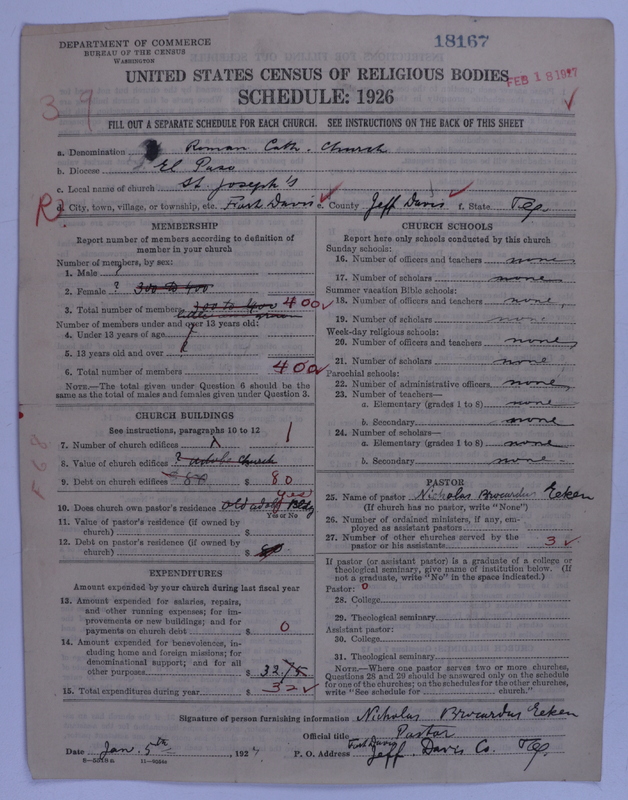 DEPARTMENT OF COMMERCE
BUREAU OF THE CENSUS
WASHINGTON
18167
UNITED STATES CENSUS OF RELIGIOUS BODIES
FEB 18 1927
SCHEDULE: 1926
39
FILL OUT A SEPARATE SCHEDULE FOR EACH CHURCH. SEE INSTRUCTIONS ON THE BACK OF THIS SHEET
a. Denomination Roman Cath. Church
b. Diocese El Paso
c. Local name of church St. Joseph's
R
d. City, town, village, or township, etc. Fort Davis e. County Jeff Davis f. State Tex
MEMBERSHIP
Report number of members according to definition of
member in your church
Number of members, by sex:
1. Male ?
2. Female ? 300 to 400
3. Total number of members 300 to 400 400
Number of members under and over 13 years old:
4. Under 13 years of age
5. 13 years old and over
6. Total number of members 400
NOTE.—The total given under Question 6 should be the
same as the total of males and females given under Question 3.
CHURCH BUILDINGS
See instructions, paragraphs 10 to 12
7. Number of church edifices 1 1
8. Value of church edifices ? adobe church
9. Debt on church edifices 80 $ 80
yes
10. Does church own pastor's residence old adobe Bldg
Yes or No
11. Value of pastor's residence (if owned by
church) $
12. Debt on pastor's residence (if owned by
church) $
F68
EXPENDITURES
Amount expended by your church during last fiscal year
13. Amount expended for salaries, repairs,
and other running expenses; for im-
provements or new buildings; and for
payments on church debt $ 0
14. Amount expended for benevolences, in-
cluding home and foreign missions; for
denominational support; and for all
other purposes $ 32.75
15. Total expenditures during year $ 32
CHURCH SCHOOLS
Report here only schools conducted by this church
Sunday schools:
16. Number of officers and teachers none
17. Number of scholars none
Summer vacation Bible schools:
18. Number of officers and teachers none
19. Number of scholars none
Week-day religious schools:
20. Number of officers and teachers none
21. Number of scholars none
Parochial schools:
22. Number of administrative officers none
23. Number of teachers—
a. Elementary (grades 1 to 8) none
b. Secondary none
24. Number of scholars—
a. Elementary (grades 1 to 8) none
b. Secondary none
PASTOR
25. Name of pastor Nicholas Brocardus Eeken
(If church has no pastor, write "None")
26. Number of ordained ministers, if any, em-
ployed as assistant pastors
27. Number of other churches served by the
pastor or his assistants 3
If pastor (or assistant pastor) is a graduate of a college or
theological seminary, give name of institution below. (If
not a graduate, write "No" in the space indicated.)
Pastor: 0
28. College
29. Theological seminary
Assistant pastor:
30. College
31. Theological seminary
NOTE.—Where one pastor serves two or more churches,
Questions 28 and 29 should be answered only on the schedule
for one of the churches; on the schedules for the other churches,
write "See schedule for church."
Signature of person furnishing information Nicholas Brocardus Eeken
Official title Pastor
Date Jan. 5th, 1927 P. O. Address Fort Davis Jeff. Davis Co. Tex